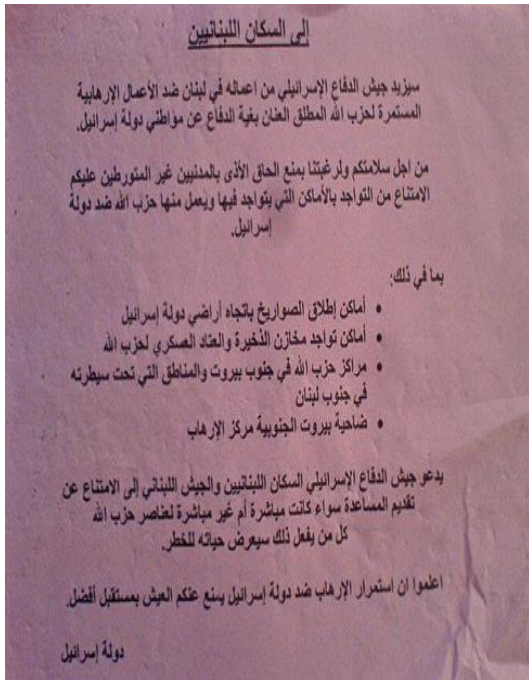 إلى السكان اللبنانيين
سيزيد جيش الدفاع الإسرائيلي من اعماله في لبنان ضد الأعمال الإرهابية
المستمرة لحزب الله المطلق العنان بغية الدفاع عن مواطني دولة إسرائيل.
من اجل سلامتكم ولرغبتنا بمنع الحاق الأذى بالمدنيين غير المتورطين عليكم
الامتناع من التواجد بالأماكن التي يتواجد فيها ويعمل منها حزب الله ضد دولة
إسرائيل.
بما في ذلك:
• أماكن إطلاق الصواريخ باتجاه أراضي دولة إسرائيل
• أماكن تواجد مخازن الذخيرة والعتاد العسكري لحزب الله
• مراكز حزب الله في جنوب بيروت والمناطق التي تحت سيطرته
في جنوب لبنان
• ضاحية بيروت الجنوبية مركز الإرهاب
يدعو جيش الدفاع الإسرائيلي السكان اللبنانيين والجيش اللبناني إلى الامتناع عن
تقديم المساعدة سواء كانت مباشرة أم غير مباشرة لعناصر حزب الله
كل من يفعل ذلك سيعرض حياته للخطر.
اعلموا ان استمرار الإرهاب ضد دولة إسرائيل يمنع عنكم العيش بمستقبل أفضل.
دولة إسرائيل